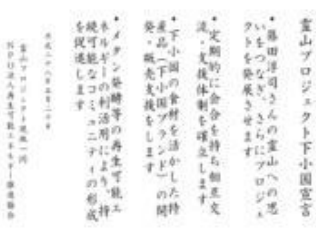 霊山プロジェクト下小国宣言
• 藤田淳司さんの霊山への思
いをつなぎ、さらにプロジェ
クトを発展させます
• 定期的に会合を持ち相互交
流・支援体制を確立します
• 下小国の食材を活かした特
産品（下小国ブランド）の開
発・販売支援をします
• メタン発酵等の再生可能エ
ネルギーの利活用により、持
続可能なコミュニティの形成
を促進します
平成二八年五月二十日
霊山プロジェクト現地一同
NPO法人再生可能エネルギー推進協会